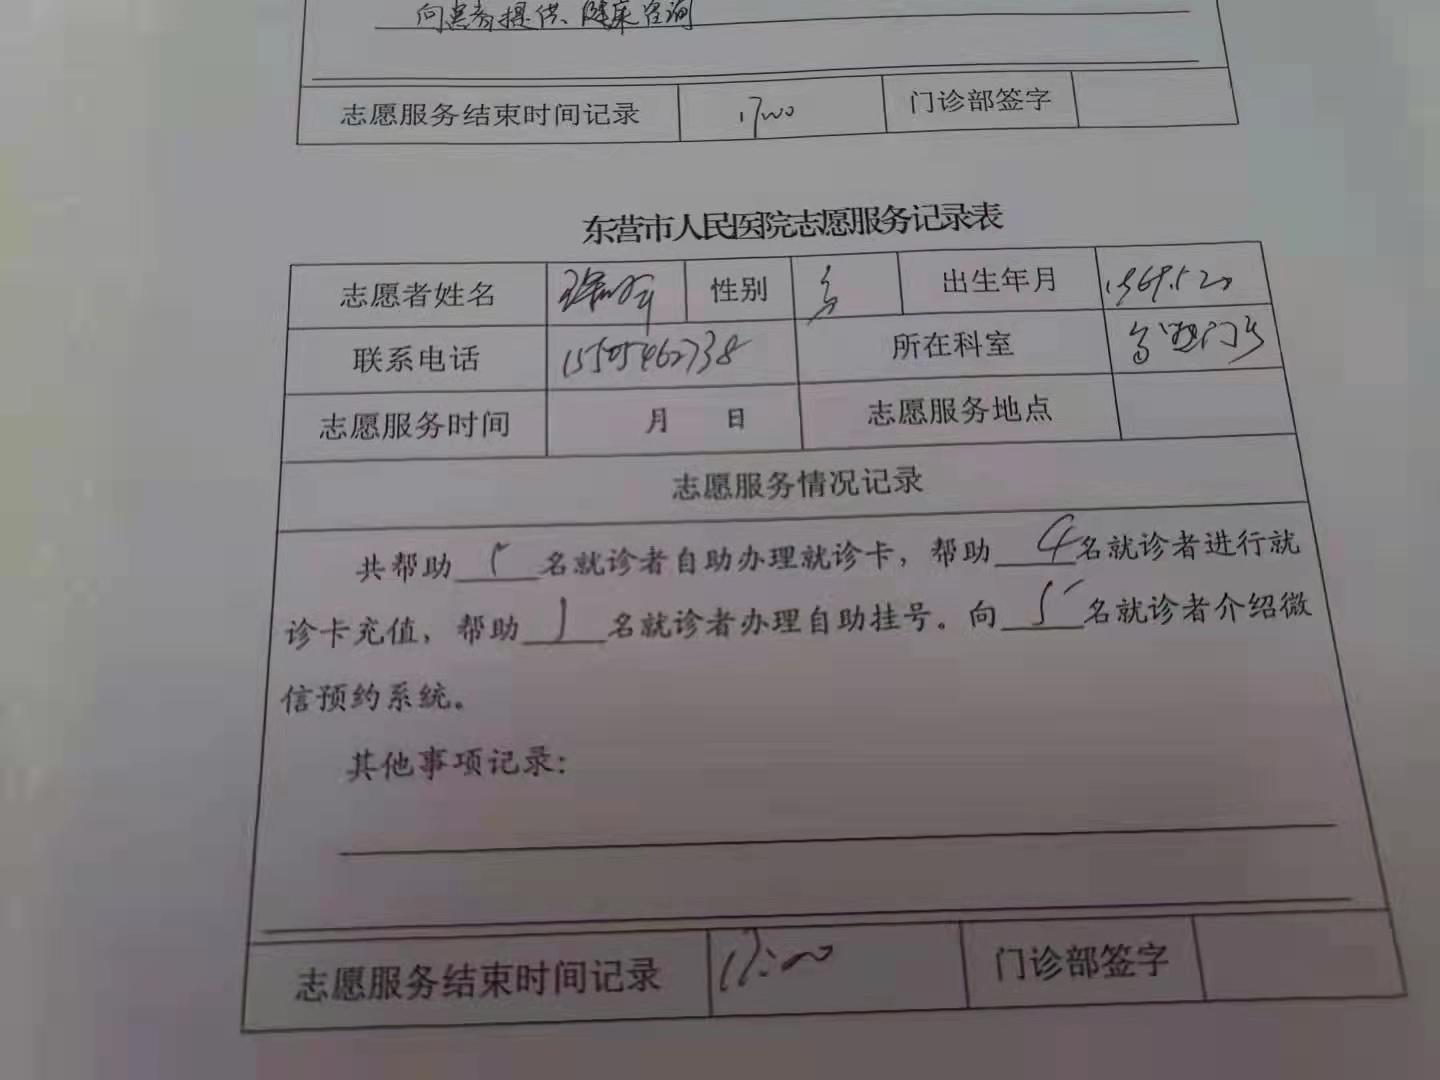 向患者提供、健康咨询
志愿服务结束时间记录 17:00 门诊部签字
东营市人民医院志愿服务记录表
志愿者姓名 性别 出生年月 1969.5.20
联系电话 15505462738 所在科室
志愿服务时间 月 日 志愿服务地点
志愿服务情况记录
共帮助 名就诊者自助办理就诊卡，帮助 4 名就诊者进行就
诊卡充值，帮助 1 名就诊者办理自助挂号。向 5 名就诊者介绍微
信预约系统。
其他事项记录：
志愿服务结束时间记录 17:00 门诊部签字